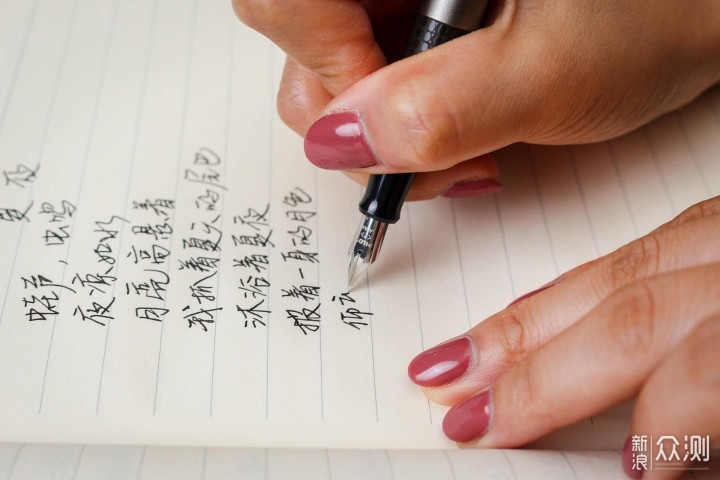 夏夜
蛙声，虫鸣
夜凉如水
月亮高悬着
我抓着夏天的尾巴
沐浴着夏夜
披着一身的月色
仰
新浪众测